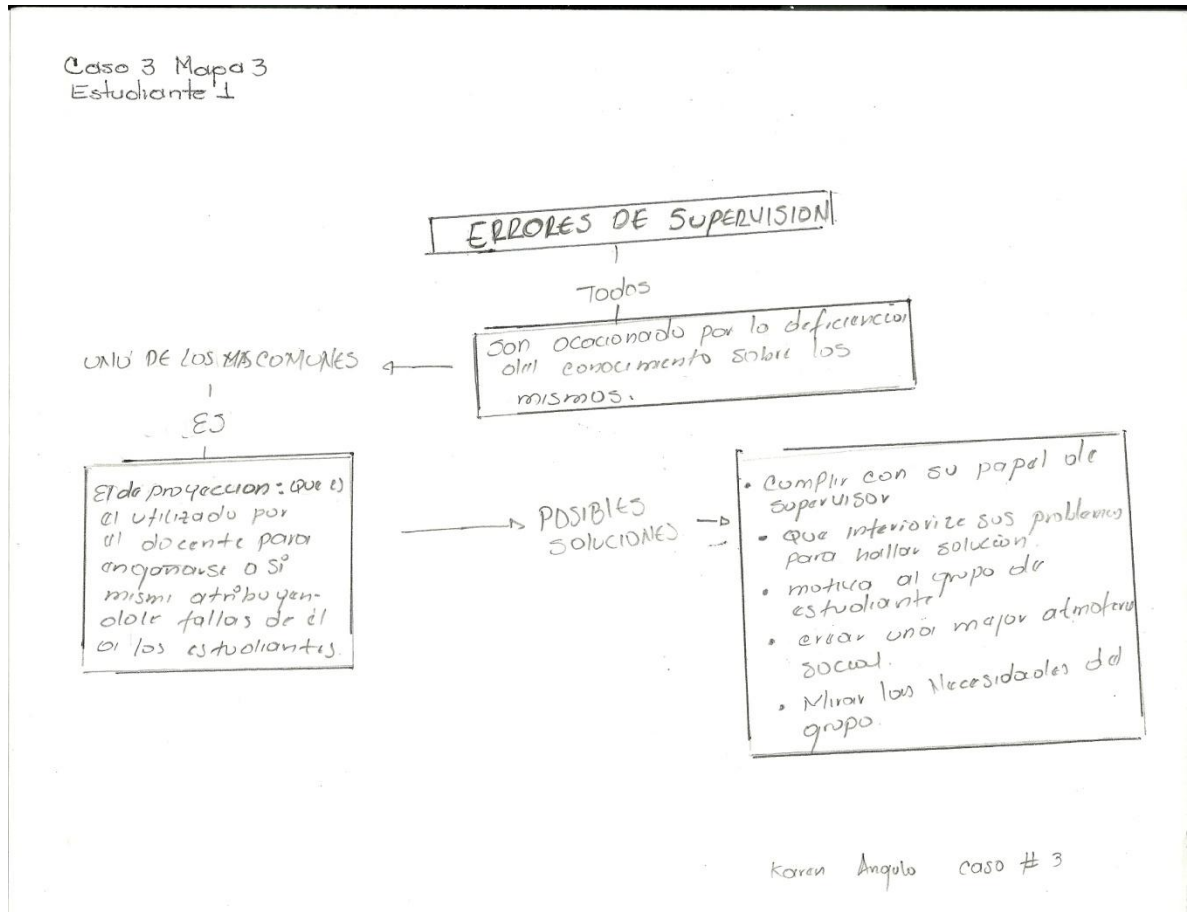 Caso 3 Mapa 3
Estudiante 1
ERRORES DE SUPERVISION
Todos
Son ococionado por la deficiencia
del conocimiento sobre los
mismos.
UNO DE LOS MAS COMUNES
ES
El de proyeccion: que es
el utilizado por
el docente para
engañarse a si
mismi atribuyen-
dole fallas de él
a los estudiantes.
POSIBLES
SOLUCIONES
• Cumplir con su papel de
supervisor
• Que interiorize sus problemas
para hallar solución.
• motiva al grupo de
estudiante
• crear una mejor atmofera
social.
• Mirar las Necesidades del
grupo.
Karen Angulo caso # 3